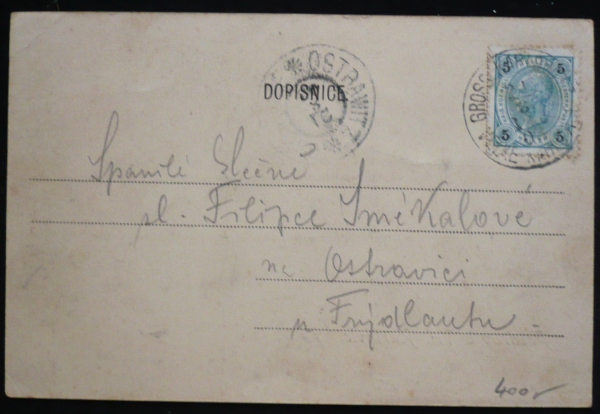 OSTRAWIT
DOPISNICE.
GROSS
5 5
5 5
Spanilé Slečne
sl. Filipce Smékalové
na Ostravici
u Frýdlantu.
400